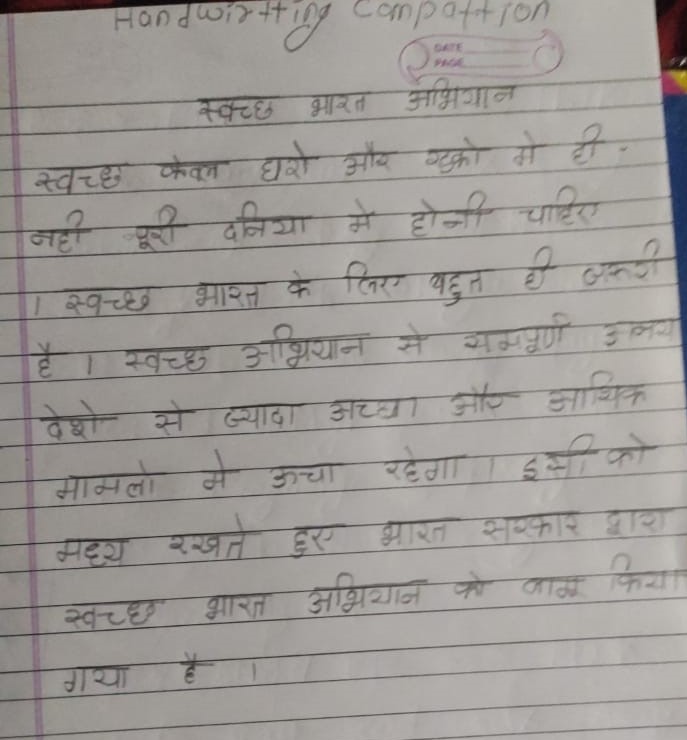 Handwirtting Compattion
DATE
PAGE
स्वच्छ भारत अभियान
स्वच्छ केवल घरो और सडको मे ही
नही पूरी दनिया मे होनी चाहिए
। स्वच्छ भारत के लिए बहुत ही जरुरी
है । स्वच्छ अभियान से सम्पूर्ण
देशो से ज्यादा अच्छा और आर्थिक
मामलो मे ऊचा रहेगा । इसी को
मध्य रखते हुए भारत सरकार द्वारा
स्वच्छ भारत अभियान को किया
गया है ।